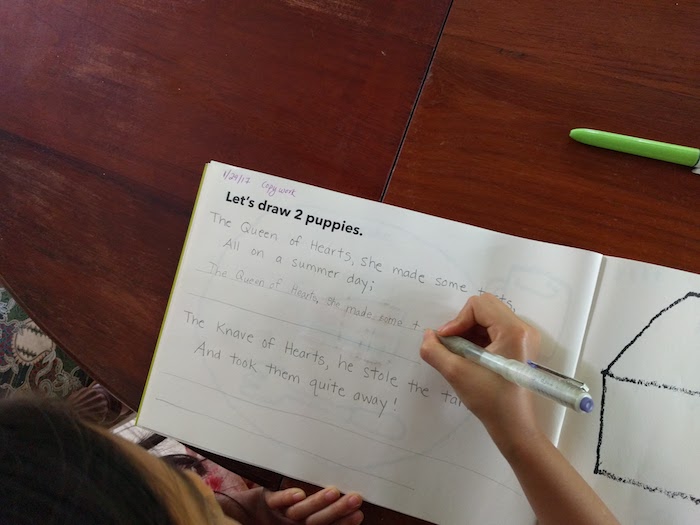 1/24/17 Copy work
Let's draw 2 puppies.
The Queen of Hearts, she made some tarts,
All on a summer day;
The Queen of Hearts, she made some t
The Knave of Hearts, he stole the tar
And took them quite away!